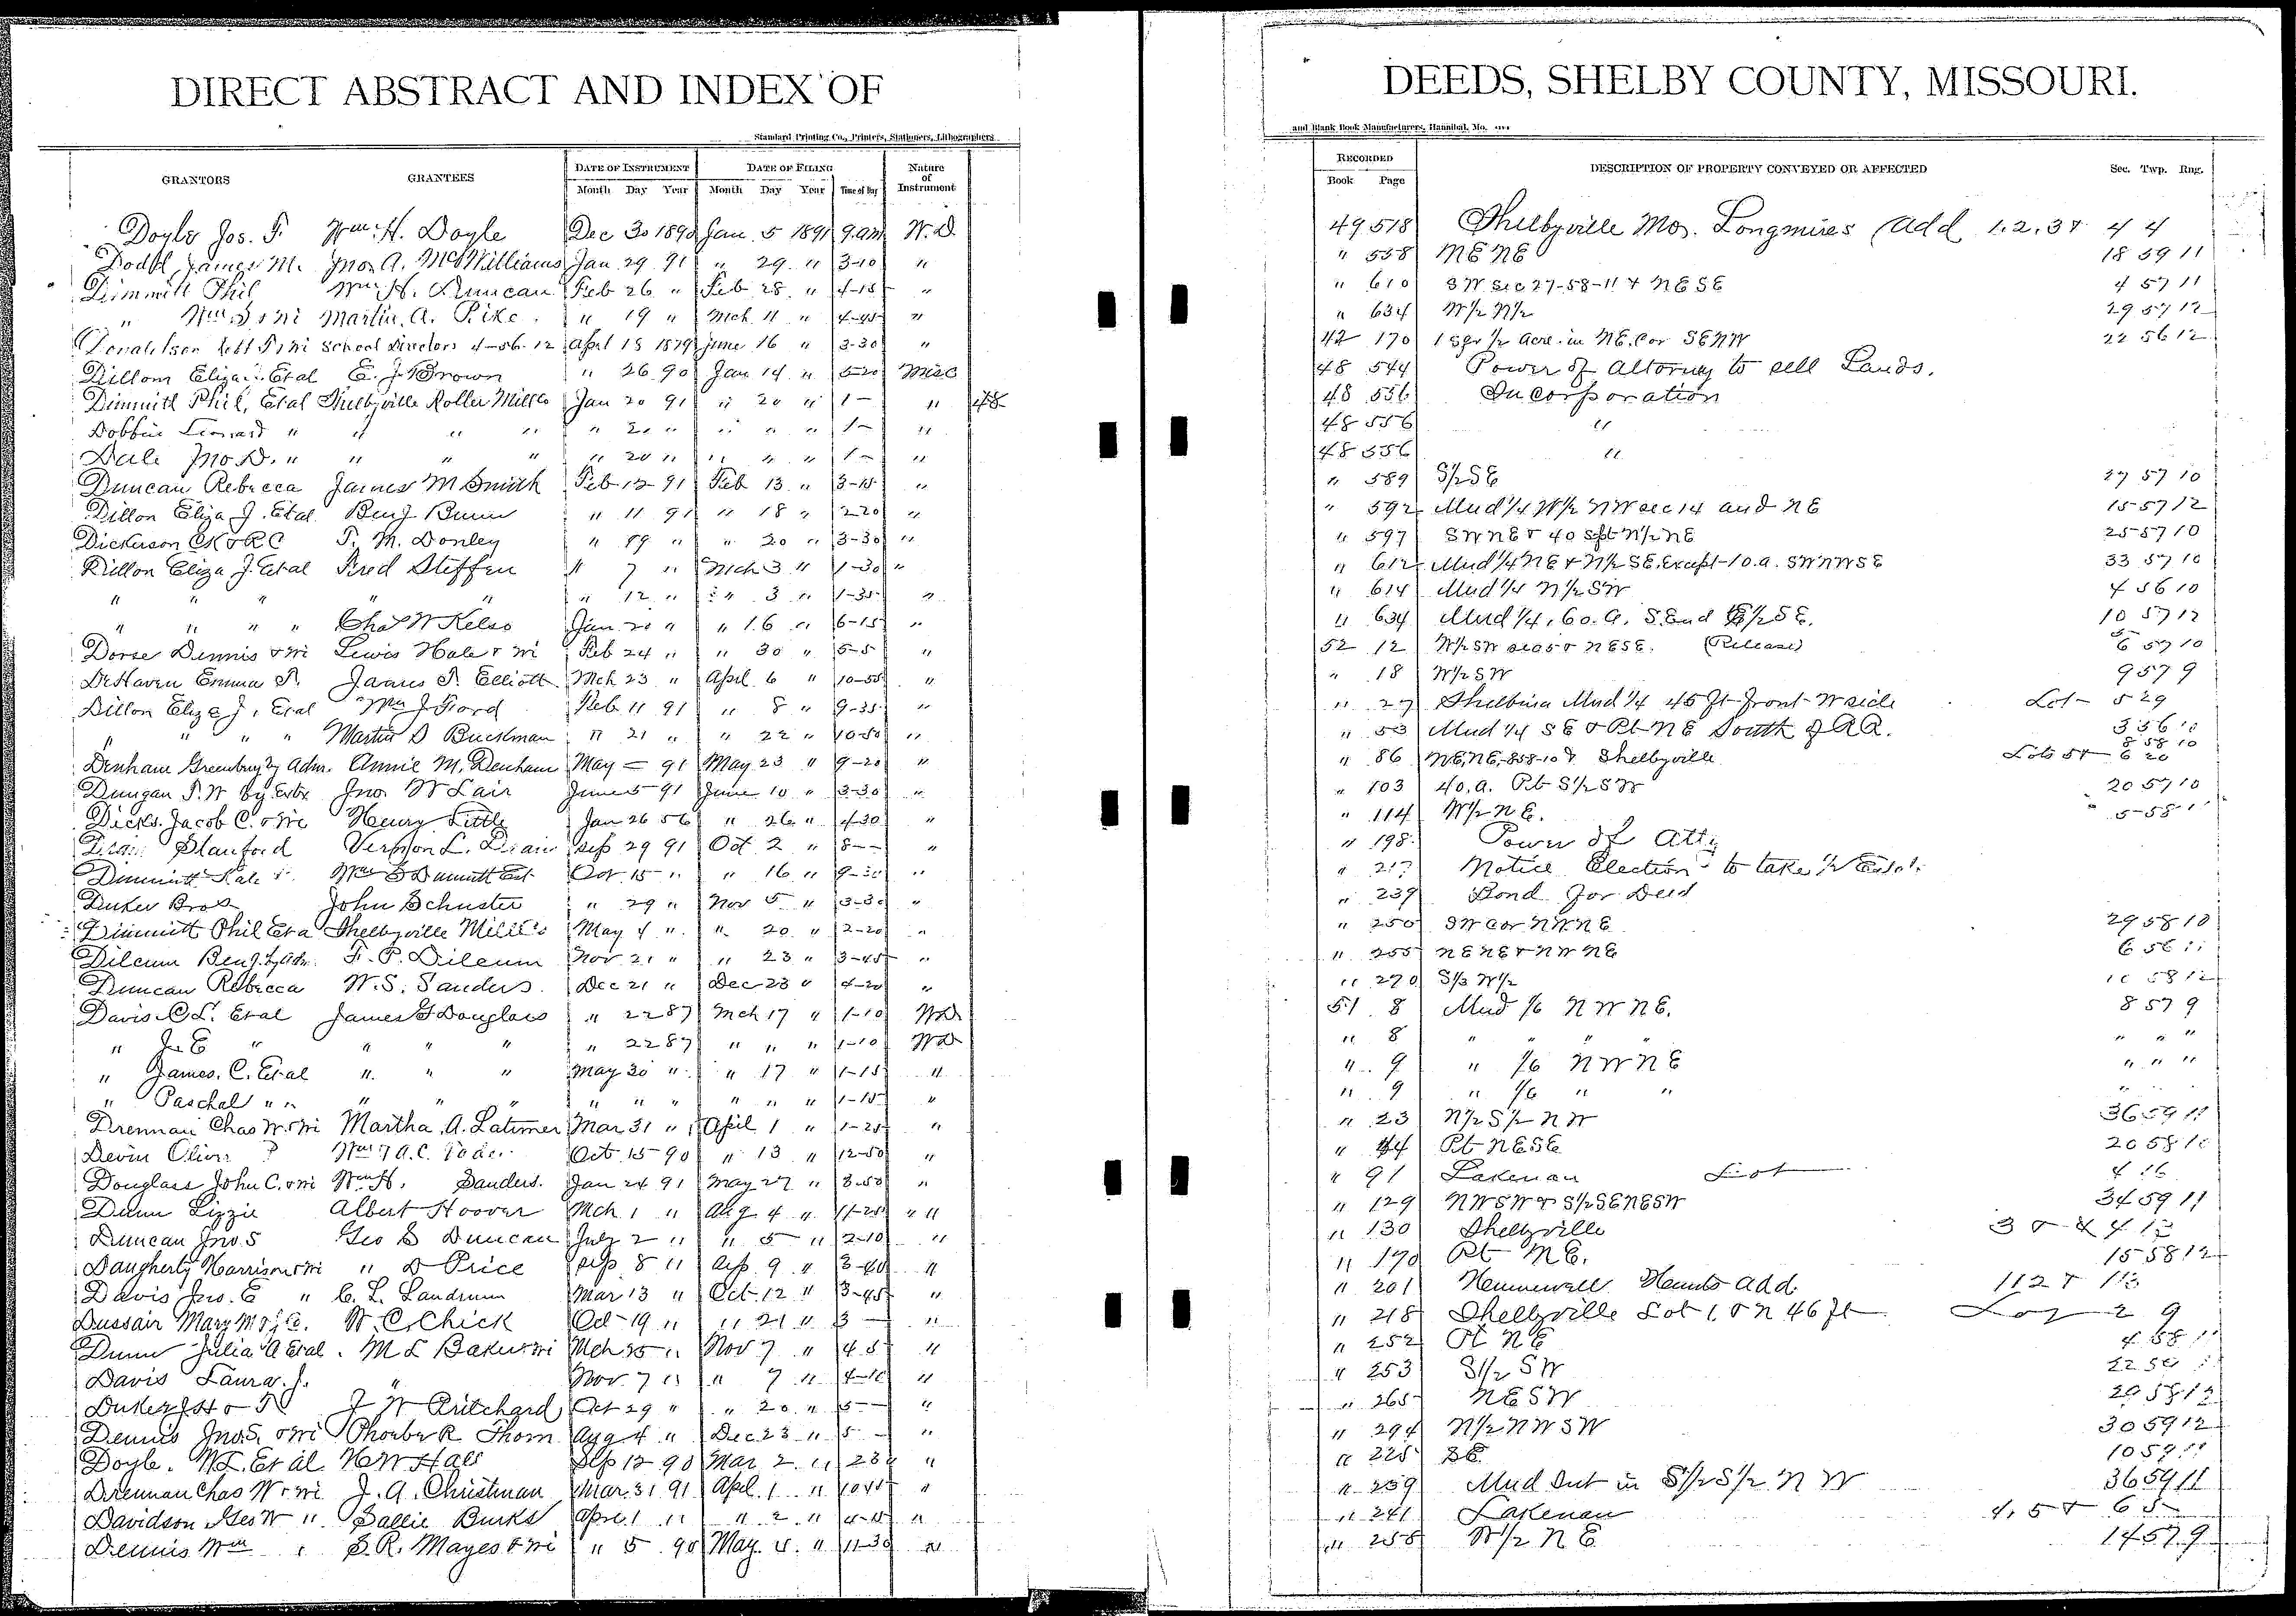 DIRECT ABSTRACT AND INDEX OF DEEDS, SHELBY COUNTY, MISSOURI.
Standard Printing Co., Printers, Stationers, Lithographers and Blank Book Manufacturers, Hannibal, Mo.
GRANTORS GRANTEES DATE OF INSTRUMENT DATE OF FILING Nature of Instrument RECORDED DESCRIPTION OF PROPERTY CONVEYED OR AFFECTED Sec. Twp. Rng.
Month Day Year Month Day Year Time of Day Book Page
Doyle Jos. F. Wm. H. Doyle Dec 30 1890 Jan. 5 1891 9.am W.D. 49 518 Shelbyville Mo. Longmires Add 1.2.3 & 4 4
Dodd, James M. Jno. A. McWilliams Jan 29 91 " 29 " 3-10 " " 558 NENE 18 59 11
Dimmitt Phil Wm H. Duncan Feb 26 " Feb 28 " 4-15 " " 610 SW Sec 27-58-11 & NESE 4 57 11
" Wm & wi Martin A. Pike " 19 " Mch 11 " 4-45 " " 634 W1/2 N1/2 29 57 12
Donaldson & wi School Directors 4-56-12 April 18 1879 June 16 " 3-30 " 42 170 1 Sqr 1/2 Acre in NE Cor SENW 22 56 12
Dillon Eliza J. Etal E. J. Brown " 26 90 Jan 14 " 5-20 Misc 48 544 Power of Attorney to sell Lands.
Dimmitt Phil, Etal Shelbyville Roller Mill Co Jan 20 91 " 20 " 1- " 48 48 556 Incorporation
Dobbin Leonard " " " " " 20 " " " " 1- " 48 556 "
Dale Jno. D. " " " " " 20 " " " " 1- " 48 556 "
Duncan Rebecca James M Smith Feb 12 91 Feb 13 " 3-15 " " 589 S1/2SE 27 57 10
Dillon Eliza J. Etal Benj Bunn " 11 91 " 18 " 2 20 " " 592 Und 1/4 W1/2 NW sec 14 and NE 15 57 12
Dickerson CK & RC T. M. Donley " 19 " " 20 " 3-30 " " 597 SWNE & 40 Spt N1/2NE 25 57 10
Dillon Eliza J. Etal Fred Steffen " 7 " Mch 3 " 1-30 " " 612 Und 1/4 NE & N1/2 SE. Except 10.a. SWNWSE 33 57 10
" " " " " " 12 " " 3 " 1-35 " " 614 Und 1/4 N1/2 SW 4 56 10
" " " " Chas W Kelso Jan 20 " " 16 " 6-15 " " 634 Und 1/4, 60.a. S. End E1/2 SE. 10 57 12
Dorse Dennis & wi Lewis Hale & wi Feb 24 " " 30 " 5-5 " 52 12 W1/2 SW sec 5 & NESE. (Release) 6 57 10
DeHaven Emma T. James T. Elliott Mch 23 " April 6 " 10-55 " " 18 W1/2 SW 9 57 9
Dillon Eliza J, Etal Wm J Ford Feb 11 91 " 8 " 9-35 " " 27 Shelbina Und 1/4 45 ft front W side Lot 5 29
" " " " Martin D Buckman " 21 " " 22 " 10-50 " " 53 Und 1/4 SE & Pt NE South of RR. 3 56 10
Denham Greenbury by Adm. Annie M. Denham May - 91 May 23 " 9-20 " " 86 NE,NE, 8-58-10 & Shelbyville Lots 5 & 6 20 8 58 10
Dungan T. W by Extx Jno. W Lair June 5 91 June 10 " 3-30 " " 103 40.a. Pt S1/2 SW 20 57 10
Dicks. Jacob C. & wi Henry Little Jan 26 56 " 26 " 4-30 " " 114 W1/2 NE. 5-58
Drain Stanford Vernon L. Drain Sep 29 91 Oct 2 " 8-- " " 198 Power of Atty
Dimmitt Kate Wm Dimmitt Est Oct. 15 " " 16 " 9-30 " " 217 Notice Election to take 1/2
Duker Bros John Schuster " 29 " Nov 5 " 3-30 " " 239 Bond for Deed
Dimmitt Phil Eta Shelbyville Mill Co May 4 " " 20 " 2-20 " " 250 SW Cor NW.NE 29 58 10
Dileum Benj. by Adm. F. P. Dileum Nov 21 " " 23 " 3-45 " " 255 NENE & NWNE 6 56 11
Duncan Rebecca W. S. Sanders Dec 21 " Dec 23 " 4-20 " " 270 S1/3 W1/2 10 58 12
Davis C L. Etal James G Douglass " 22 87 Mch 17 " 1-10 WD 51 8 Und 1/6 NWNE. 8 57 9
" J. E " " " " " 22 87 " " " 1-10 WD " 8 " " " " " " "
" James. C. Etal " " " May 30 " " 17 " 1-15 " " 9 " 1/6 NWNE " " "
" Paschal " " " " " " " " " " " 1-15 " " 9 " 1/6 " " " " "
Drennan Chas W. & wi Martha A. Latimer Mar 31 " April 1 " 1-25 " " 23 N1/2 S1/2 NW 36 59 11
Devin Oliver Wm & A.C. Oct. 15 90 " 13 " 12-50 " " 44 Pt NESE 20 58 10
Douglass John C. & wi Wm H. Sanders. Jan 24 91 May 27 " 3-50 " " 91 Lakenan Lot 4 16
Dunn Lizzie Albert Hoover Mch 1 " Aug 4 " 11-25 " " " 129 NWSW & S1/2SENESW 34 59 11
Duncan Jno. S Geo S Duncan July 2 " " 5 " 2-10 " " 130 Shelbyville 3 & 4 13
Daugherty Harrison & wi " D Price Sep 8 " Sep. 9 " 3-40 " " 170 Pt NE. 15 58 12
Davis Jno. E " C. L. Landrum Mar 13 " Oct 12 " 3-45 " " 201 Hunnewell Hunts Add. 112 & 113
Dussair Mary M W. C. Chick Oct 19 " " 21 " 3 - " " 218 Shelbyville Lot 1, & N 46 ft 2 9
Dunn Julia A Etal. M L Baker & wi Mch 25 " Nov 7 " 4 5 " " 252 Pt NE 4 58 11
Davis Laura. J. " Nov. 7 " " 7 " 4-10 " " 253 S1/2 SW
Duker J H & T J W Pritchard Oct 29 " " 20 " 5-- " " 265 NESW 20 58 12
Dennis Jno. S. & wi Phoebe R Thorn Aug 4 " Dec 23 " 5 - " " 294 N1/2 NWSW 30 59 12
Doyle. W L. Et al. H W Hall Sep 12 90 Mar 2 " 2 30 " " 225 SE 10 59 11
Drennan Chas W & wi J. A. Christman Mar. 31 91 April. 1 " 10 45 " " 239 Und Int in S1/2 S1/2 NW 36 59 11
Davidson Geo W " Sallie Burks Apr. 1 " " 2 " 4-15 " " 241 Lakenan 4, 5 & 6 5
Dennis Wm S. R. Mayes & wi " 5 90 May 4 " 11-30 " " 258 W1/2 NE 14 57 9